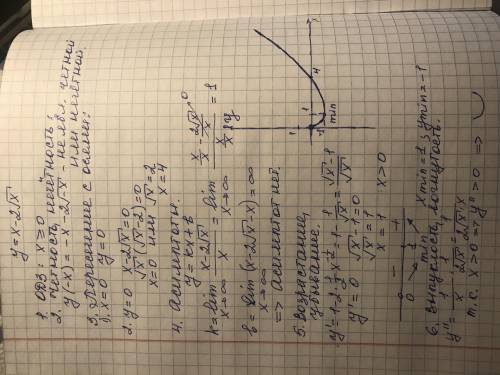 y = x - 2√x
1. ОДЗ: x ≥ 0
2. Четность, нечётность;
y(-x) = -x - 2√-x - не явл. четной
или нечётной.
3. Пересечение с осями:
1) x = 0 y = 0
2. y = 0 x - 2√x = 0
√x(√x - 2) = 0
x = 0 или √x = 2
x = 4
4. Асимптоты.
y = kx + b
k = lim x→∞ (x - 2√x)/x = lim x→∞ (x/x - 2√x/x)/(x/x) = 1
b = lim x→∞ (x - 2√x - x) = ∞
=> Асимптот нет.
5. Возрастание,
убывание.
y' = 1 - 2·1/2 x^-1/2 = 1 - 1/√x = (√x - 1)/√x
y' = 0 √x - 1 = 0
√x = 1
x = 1 x > 0
0 - 1 +
min xmin = 1; ymin = -1
6. Выпуклость, вогнутость.
т.к. x > 0 => y'' > 0 =>
y
4
1
-1
min